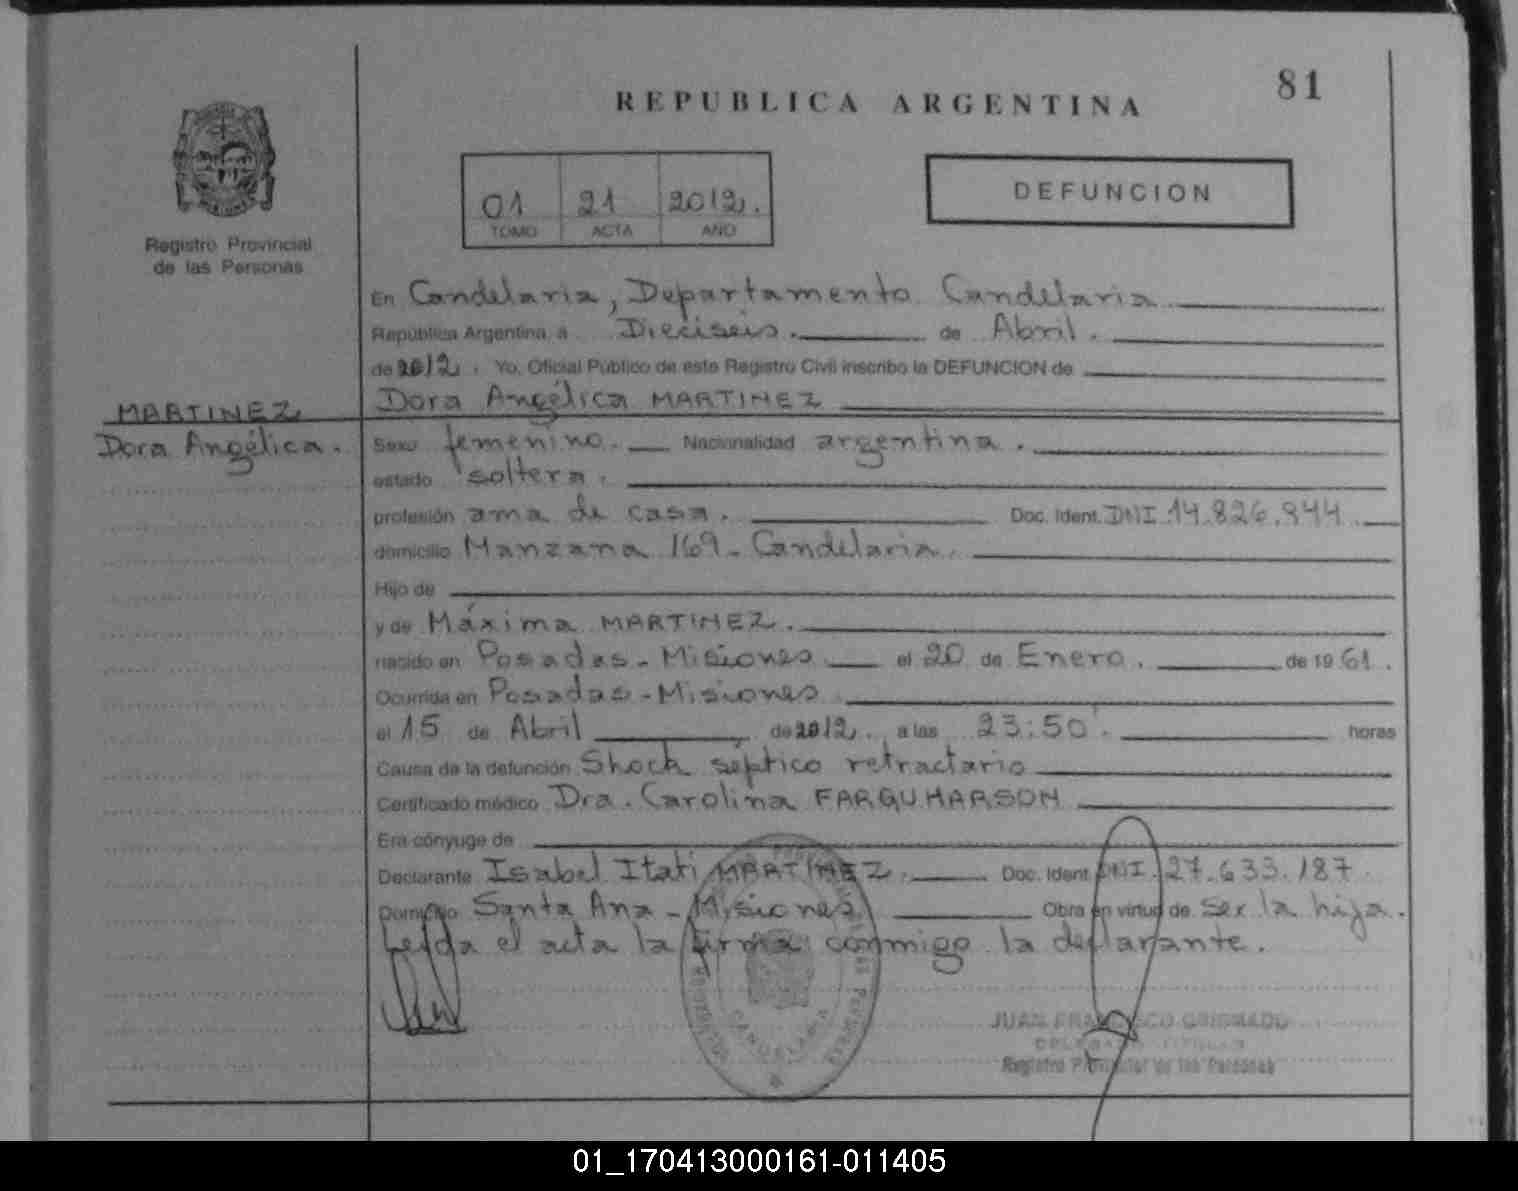 81
REPUBLICA ARGENTINA
01 21 2012.
TOMO ACTA AÑO
DEFUNCION
Registro Provincial
de las Personas
En Candelaria, Departamento Candelaria
República Argentina a Dieciseis. de Abril.
de 2012. Yo, Oficial Público de este Registro Civil inscribo la DEFUNCION de
Dora Angélica MARTINEZ
MARTINEZ
Dora Angélica.
Sexo femenino. Nacionalidad argentina.
estado soltera.
profesión ama de casa. Doc. Ident. DNI 14.826.944
domicilio Manzana 169- Candelaria.
Hijo de
y de Máxima MARTINEZ.
nacido en Posadas-Misiones el 20 de Enero. de 1961.
Ocurrida en Posadas-Misiones
el 15 de Abril de 2012. a las 23:50'. horas
Causa de la defunción Shock séptico retractario
Certificado médico Dra. Carolina FARQUHARSON
Era cónyuge de
Declarante Isabel Itatí MARTINEZ. Doc. Ident. DNI. 27.633.187
Domicilio Santa Ana-Misiones Obra en virtud de ser la hija.
Leída el acta la firma conmigo la declarante.
CANDELARIA
JUAN FRANCISCO
DELEGADO TITULAR
Registro Provincial de las Personas
01_170413000161-011405